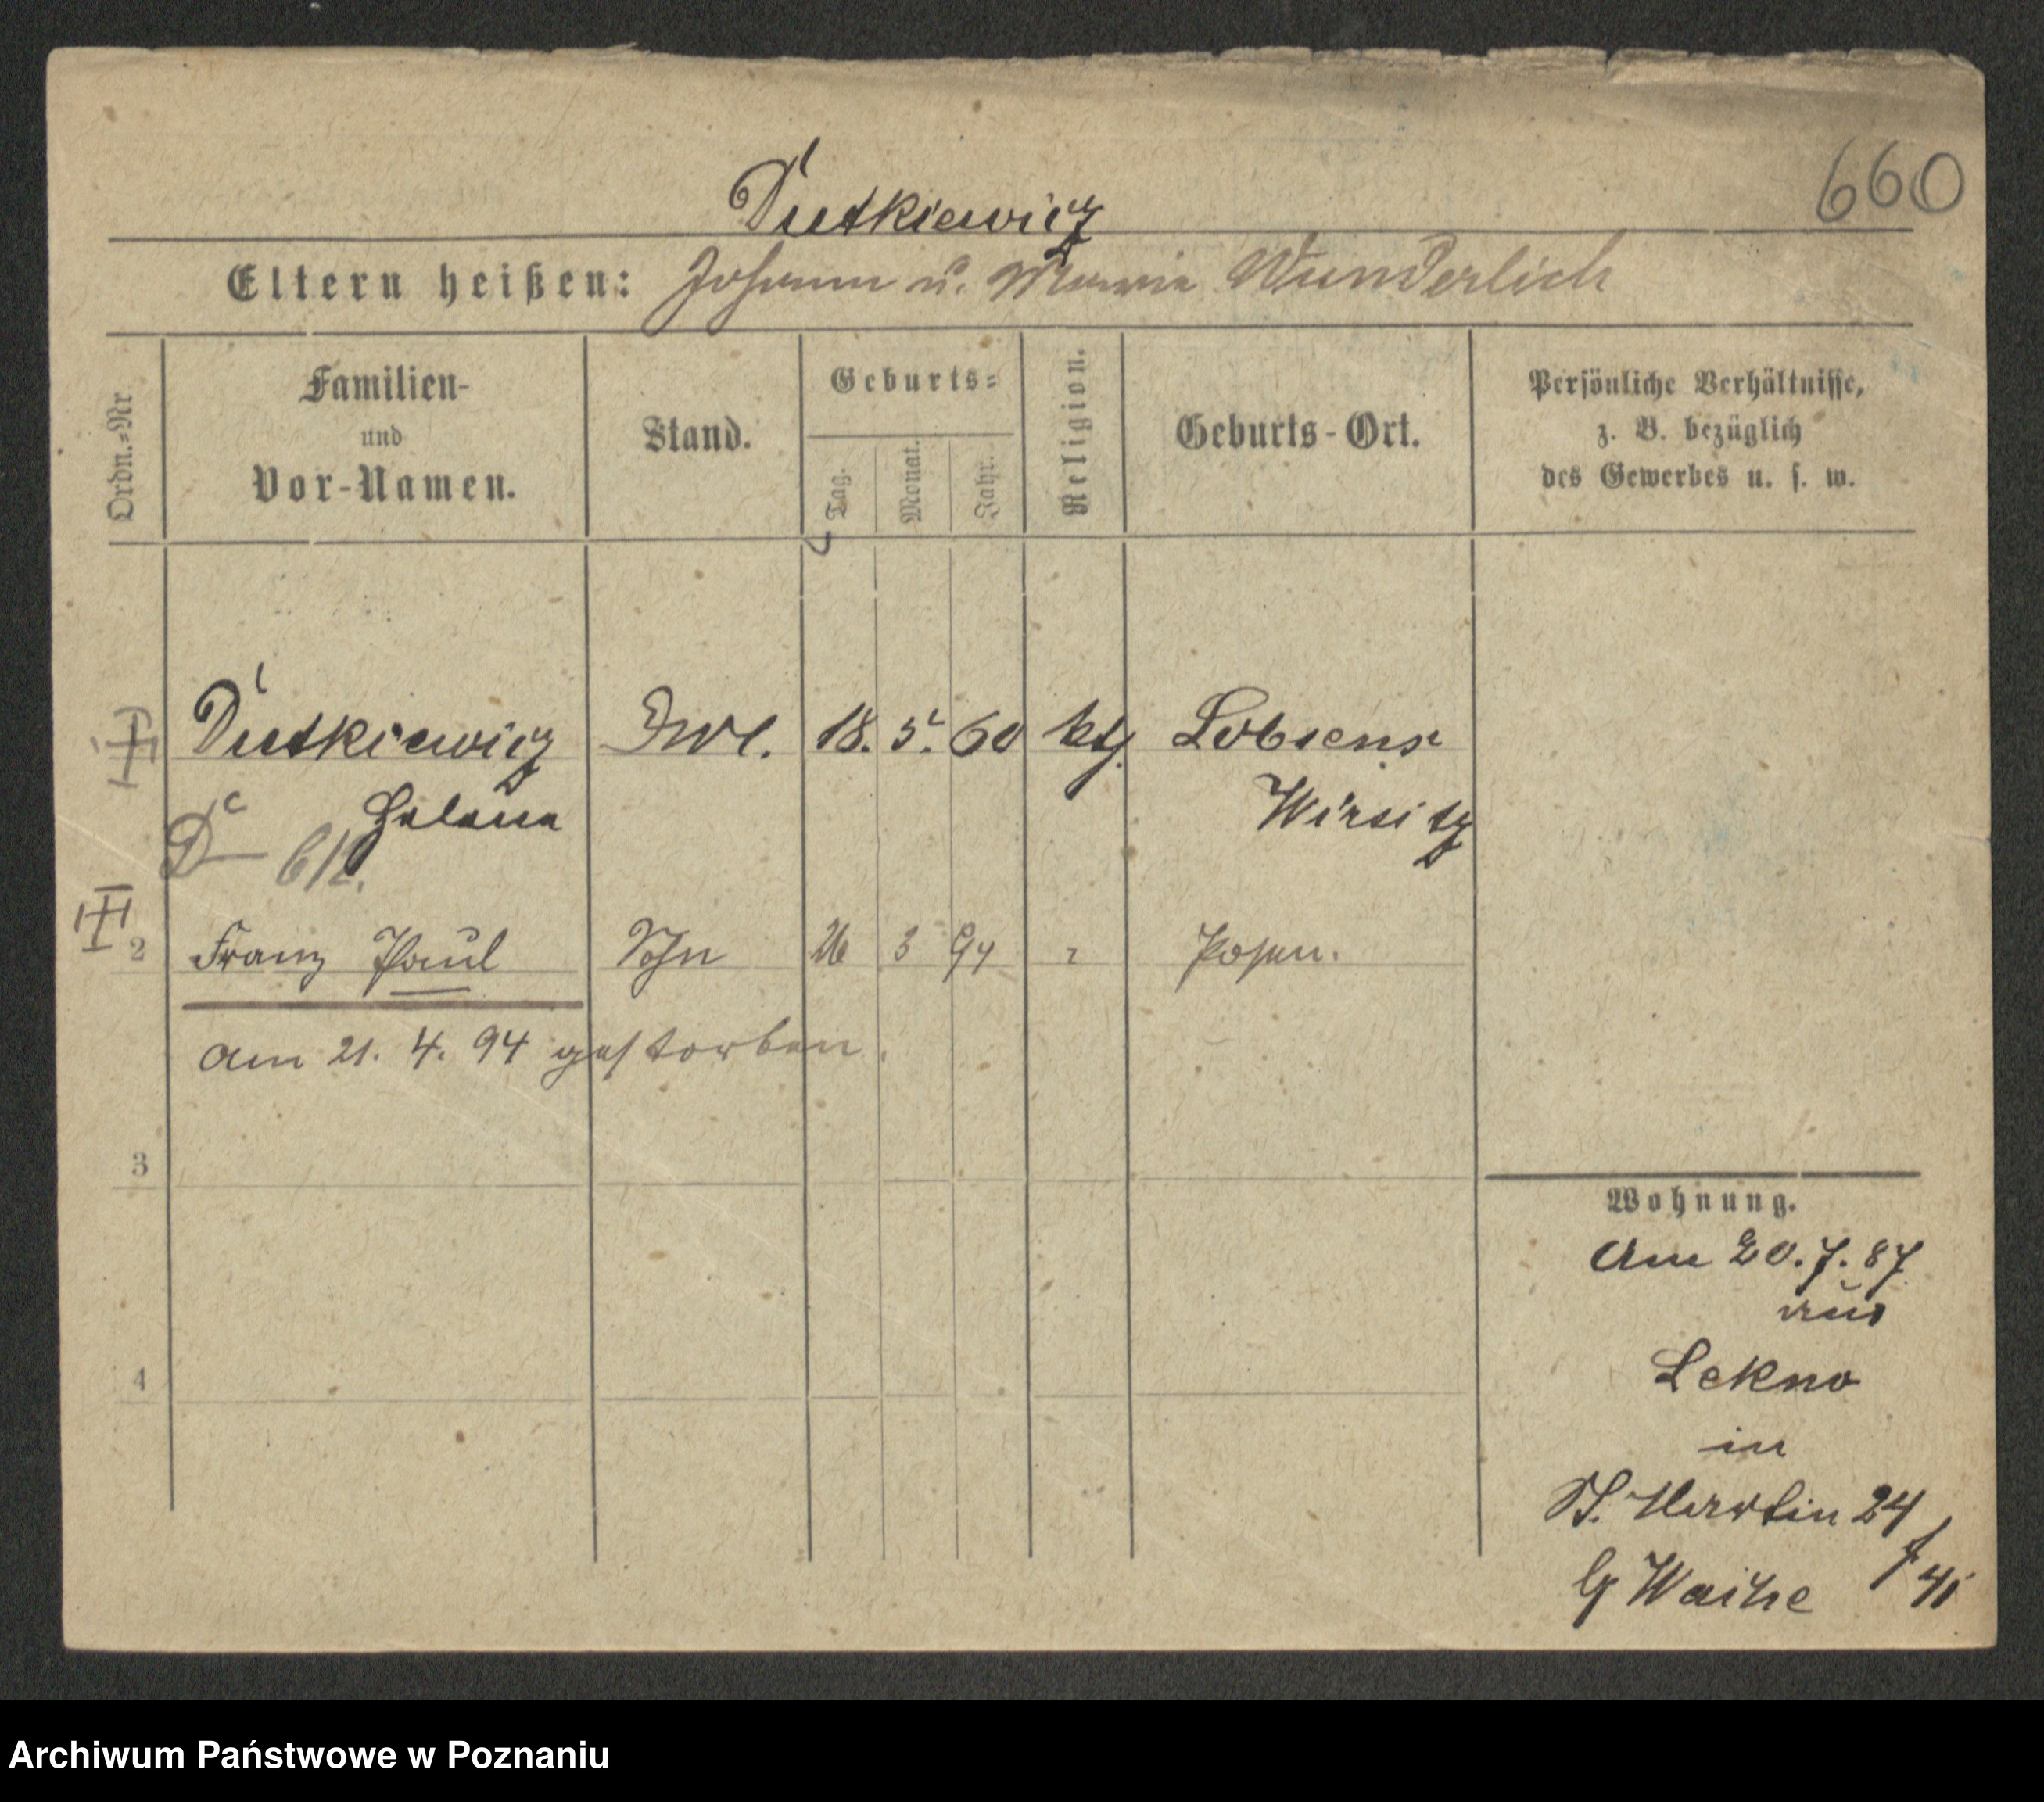 660
Dutkiewicz
Eltern heißen: Johann u. Maria Wunderlich
Ordn.-Nr
Familien-
und
Vor-Namen.
Stand.
Geburts-
Tag.
Monat.
Jahr.
Religion.
Geburts-Ort.
Persönliche Verhältnisse,
z. B. bezüglich
des Gewerbes u. s. w.
Dutkiewicz 18. 5. 60 kth. Lobsens
Helena Wirsitz
2 Franz Paul Sohn 26 3 94 Posen.
am 21. 4. 94 gestorben.
3
Wohnung.
Am 20. 7. 87
aus
4
Lekno
in
St. Martin 24
41
Archiwum Państwowe w Poznaniu